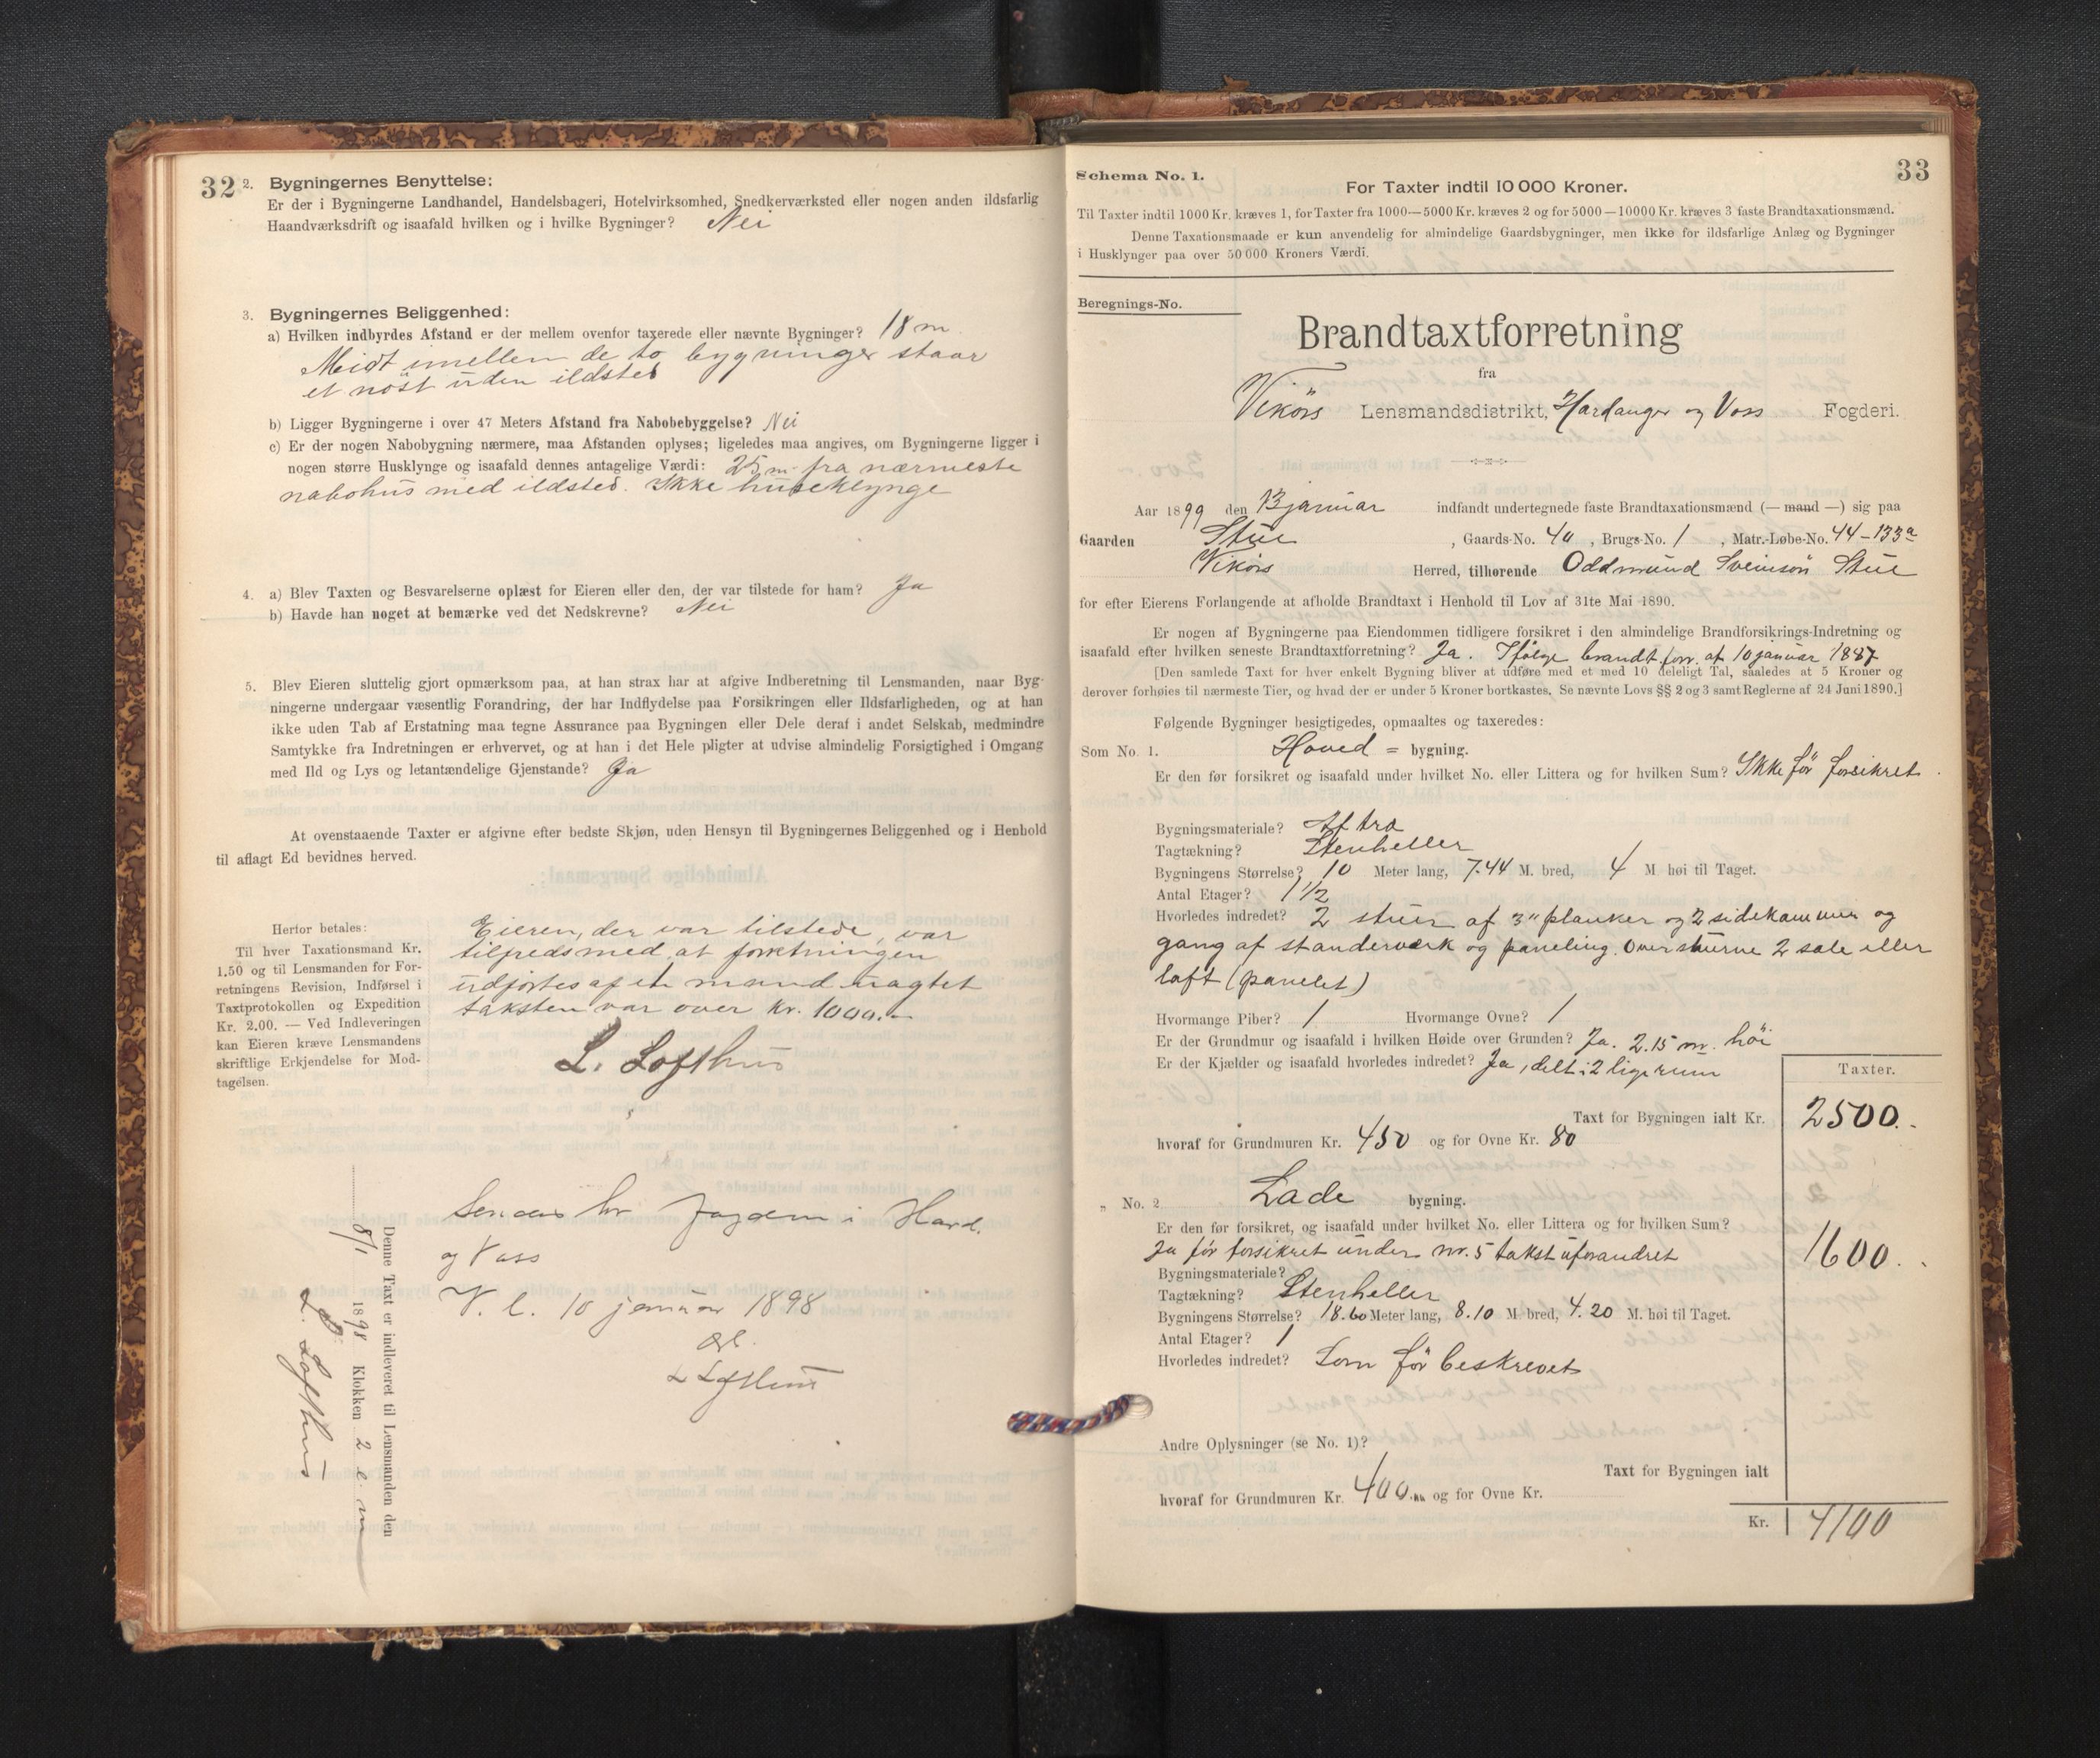 32
2. Bygningernes Benyttelse:
Er der i Bygningerne Landhandel, Handelsbageri, Hotelvirksomhed, Snedkerværksted eller nogen anden ildsfarlig
Haandværksdrift og isaafald hvilken og i hvilke Bygninger? Nei
3. Bygningernes Beliggenhed:
a) Hvilken indbyrdes Afstand er der mellem ovenfor taxerede eller nævnte Bygninger? 18 m
Midt imellem de to bygninger staar
et nöst uden ildsted
b) Ligger Bygningerne i over 47 Meters Afstand fra Nabobebyggelse? Nei
c) Er der nogen Nabobygning nærmere, maa Afstanden oplyses; ligeledes maa angives, om Bygningerne ligger i
nogen større Husklynge og isaafald dennes antagelige Værdi: 25 m. fra nærmeste
nabohus med ildsted. Ikke huseklynge
4. a) Blev Taxten og Besvarelserne oplæst for Eieren eller den, der var tilstede for ham? Ja
b) Havde han noget at bemærke ved det Nedskrevne? Nei
5. Blev Eieren sluttelig gjort opmærksom paa, at han strax har at afgive Indberetning til Lensmanden, naar Byg-
ningerne undergaar væsentlig Forandring, der har Indflydelse paa Forsikringen eller Ildsfarligheden, og at han
ikke uden Tab af Erstatning maa tegne Assurance paa Bygningen eller Dele deraf i andet Selskab, medmindre
Samtykke fra Indretningen er erhvervet, og at han i det Hele pligter at udvise almindelig Forsigtighed i Omgang
med Ild og Lys og letantændelige Gjenstande? Ja
At ovenstaaende Taxter er afgivne efter bedste Skjøn, uden Hensyn til Bygningernes Beliggenhed og i Henhold
til aflagt Ed bevidnes herved.
Herfor betales:
Til hver Taxationsmand Kr.
1.50 og til Lensmanden for For-
retningens Revision, Indførsel i
Taxtprotokollen og Expedition
Kr. 2.00. — Ved Indleveringen
kan Eieren kræve Lensmandens
skriftlige Erkjendelse for Mod-
tagelsen.
Eieren, der var tilstede, var
tilfreds med at forretningen
udfjortes af en mand uagtet
taksten var over kr. 1000.-
L. Lofthus
Sendes hr. Fogden i Hard.
og Voss
V. l. 10 januar 1898
L Lofthus
Denne Taxt er indleveret til Lensmanden den
8/1 1898 Klokken 2 e. m
L. Lofthus
33
Schema No. 1.
For Taxter indtil 10 000 Kroner.
Til Taxter indtil 1000 Kr. kræves 1, for Taxter fra 1000—5000 Kr. kræves 2 og for 5000—10000 Kr. kræves 3 faste Brandtaxationsmænd.
Denne Taxationsmaade er kun anvendelig for almindelige Gaardsbygninger, men ikke for ildsfarlige Anlæg og Bygninger
i Husklynger paa over 50 000 Kroners Værdi.
Beregnings-No.
Brandtaxtforretning
fra
Vikörs Lensmandsdistrikt, Hardanger og Voss Fogderi.
Aar 1899 den 13 januar indfandt undertegnede faste Brandtaxationsmænd (— mand —) sig paa
Gaarden Stue, Gaards-No. 40, Brugs-No. 1, Matr.-Løbe-No. 44-133a
Vikörs Herred, tilhørende Oddmund Sveinsön Stue
for efter Eierens Forlangende at afholde Brandtaxt i Henhold til Lov af 31te Mai 1890.
Er nogen af Bygningerne paa Eiendommen tidligere forsikret i den almindelige Brandforsikrings-Indretning og
isaafald efter hvilken seneste Brandtaxtforretning? Ja. Ifölge brandt.forr. af 10 januar 1887
[Den samlede Taxt for hver enkelt Bygning bliver at udføre med et med 10 deleligt Tal, saaledes at 5 Kroner og
derover forhøies til nærmeste Tier, og hvad der er under 5 Kroner bortkastes. Se nævnte Lovs §§ 2 og 3 samt Reglerne af 24 Juni 1890.]
Følgende Bygninger besigtigedes, opmaaltes og taxeredes:
Som No. 1. Hoved = bygning.
Er den før forsikret og isaafald under hvilket No. eller Littera og for hvilken Sum? Ikke för forsikret.
Bygningsmateriale? Af træ
Tagtækning? Stenheller
Bygningens Størrelse? 10 Meter lang, 7.44 M. bred, 4 M høi til Taget.
Antal Etager? 1 1/2
Hvorledes indredet? 2 stuer af 3" planker og 2 sidekammer og
gang af standerværk og paneling. Over stuerne 2 sale eller
loft (panelet)
Hvormange Piber? 1 Hvormange Ovne? 1
Er der Grundmur og isaafald i hvilken Høide over Grunden? Ja. 2.15 m. höi
Er der Kjælder og isaafald hvorledes indredet? Ja, delt i 2 lige rum
Taxter.
Taxt for Bygningen ialt Kr. 2500.-
hvoraf for Grundmuren Kr. 450 og for Ovne Kr. 80
„ No. 2 Lade bygning.
Er den før forsikret, og isaafald under hvilket No. eller Littera og for hvilken Sum?
Ja för forsikret under nr. 5 takst uforandret 1600.-
Bygningsmateriale?
Tagtækning? Stenheller
Bygningens Størrelse? 18.60 Meter lang, 8.10 M bred, 4.20 M. høi til Taget.
Antal Etager? 1
Hvorledes indredet? Som för beskrevet
Andre Oplysninger (se No. 1)?
Taxt for Bygningen ialt
hvoraf for Grundmuren Kr. 400.- og for Ovne Kr.
Kr. 4100